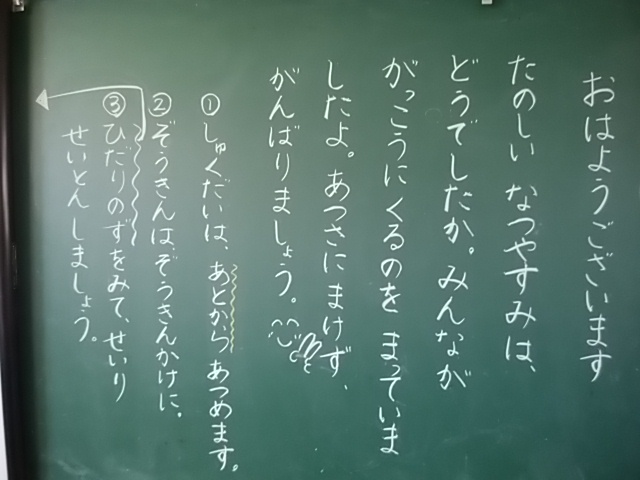 おはようございます
たのしい なつやすみは、
どうでしたか。みんなが
がっこうに くるのを まっていま
したよ。あつさに まけず、
がんばりましょう。
①しゅくだいは、あとから あつめます。
②ぞうきんはぞうきんかけに。
③ひだりのずをみて、せいり
せいとんしましょう。